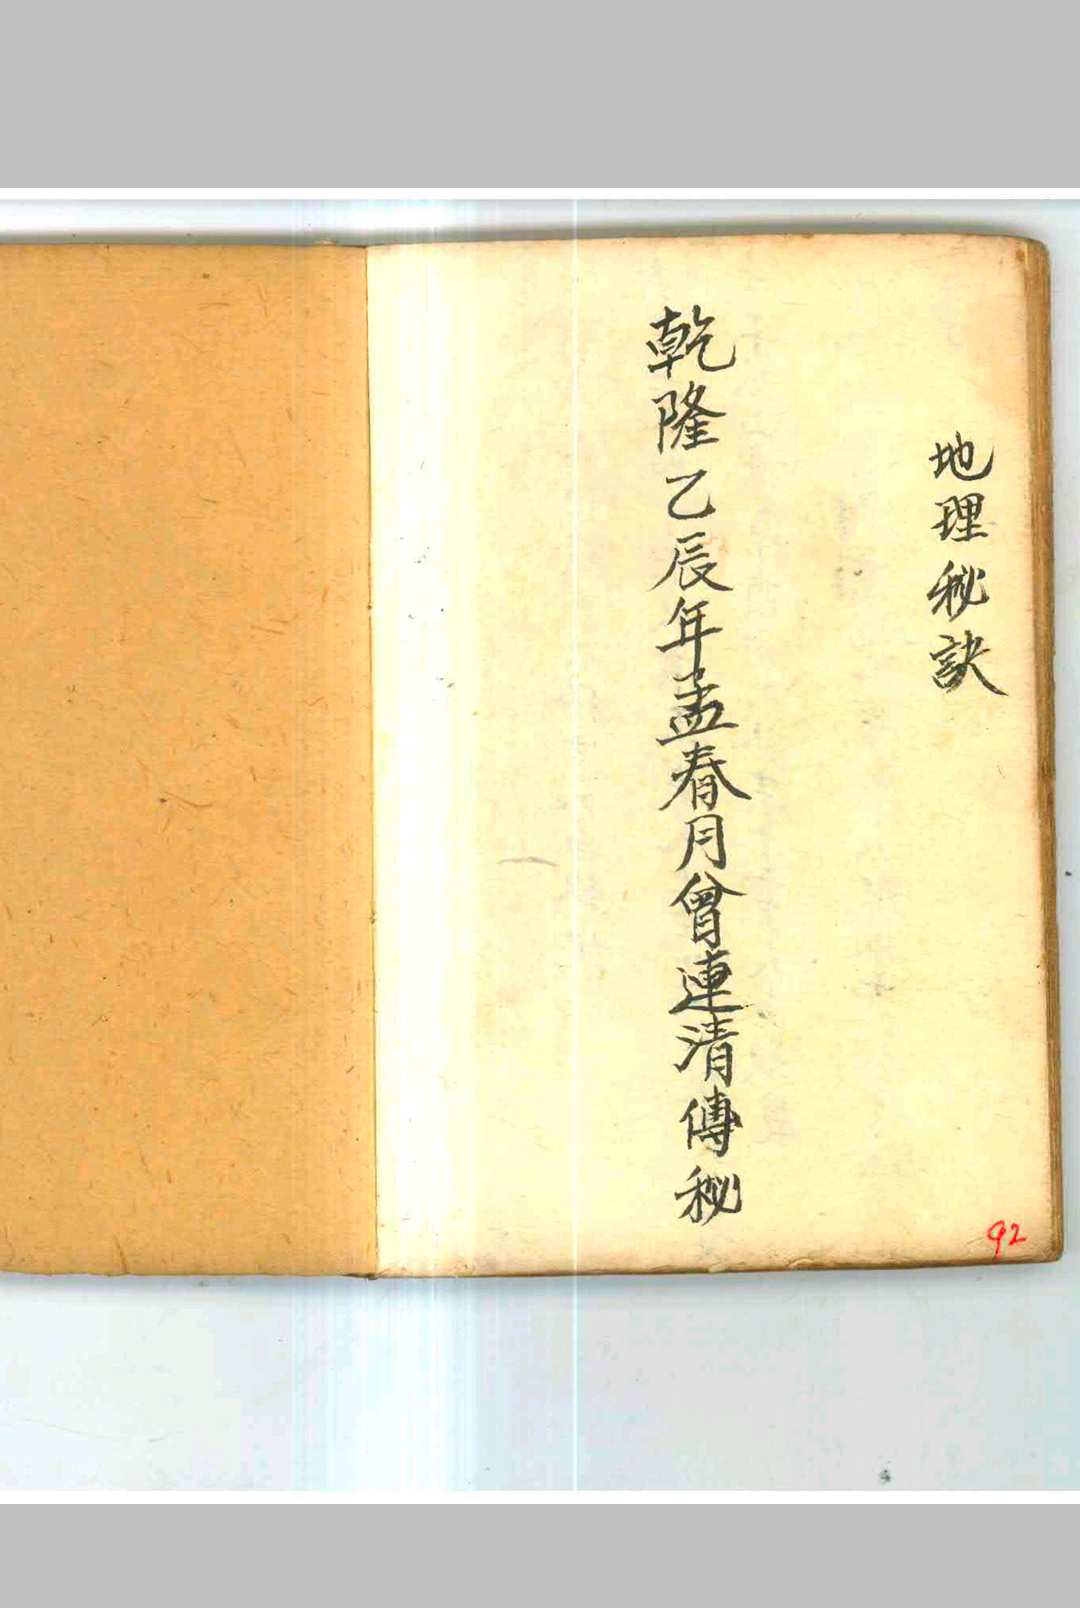 地理秘訣
乾隆乙辰年孟春月曾連清傳秘
92